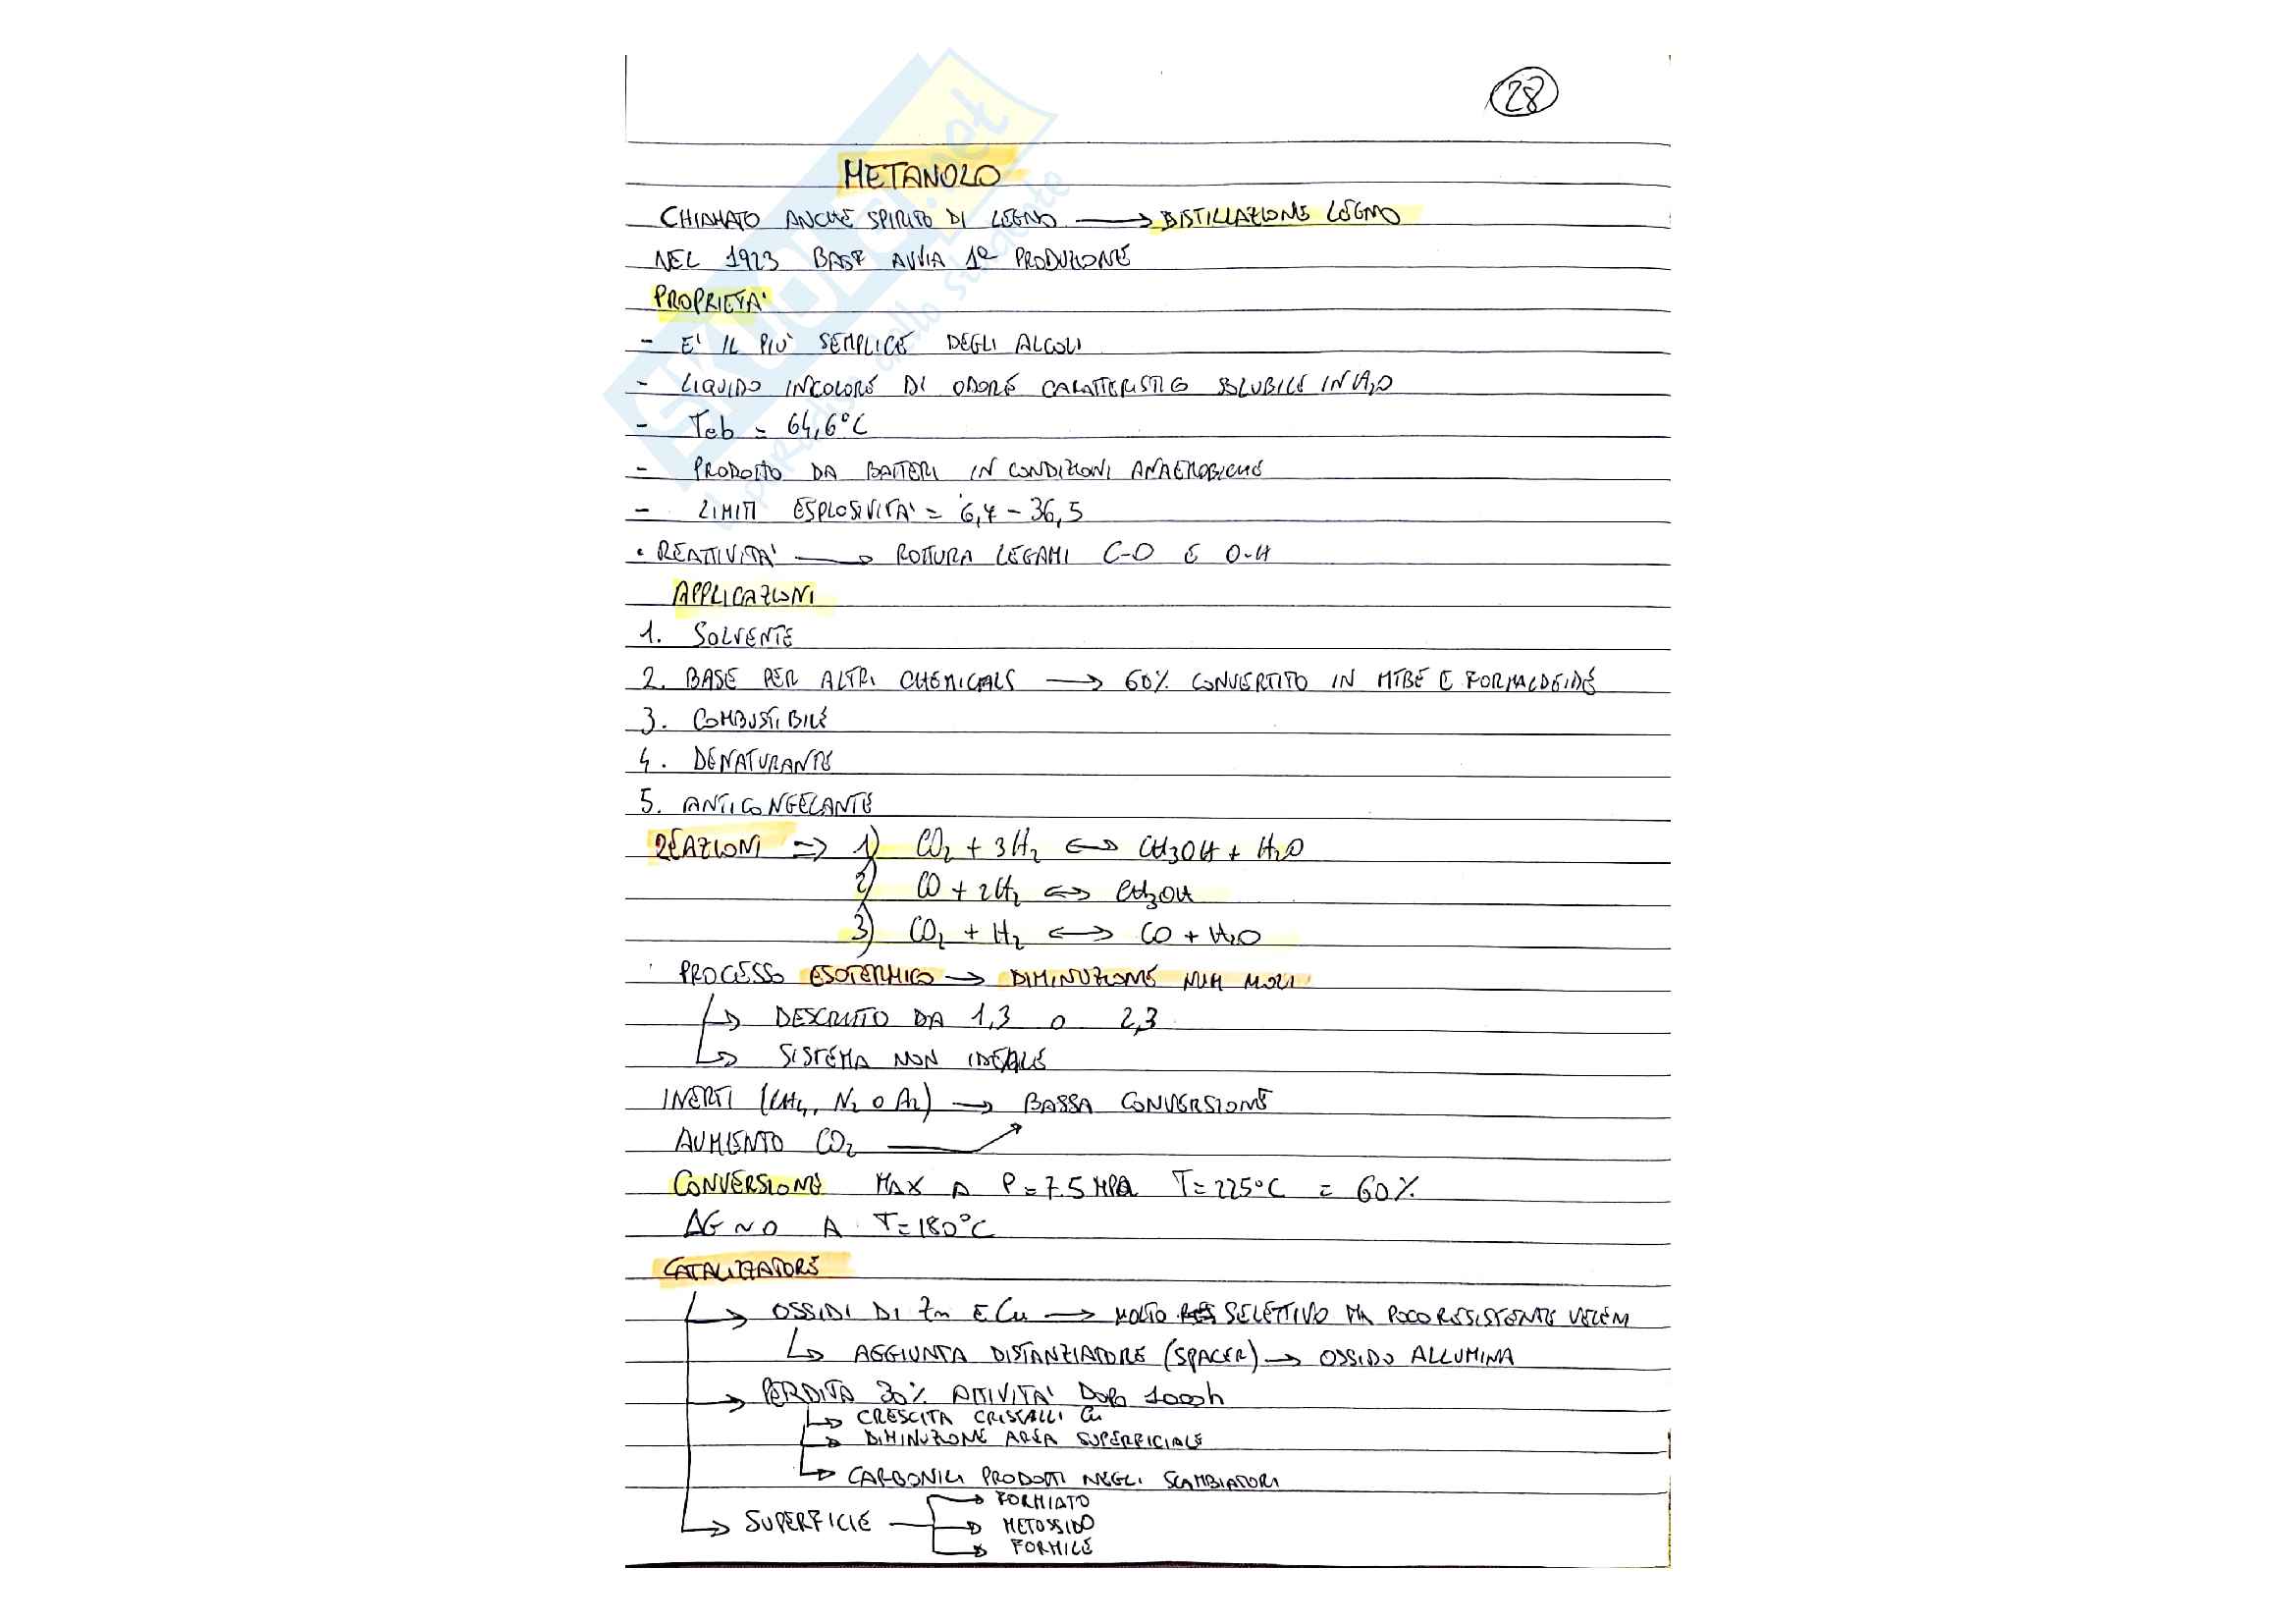 28
METANOLO
CHIAMATO ANCHE SPIRITO DI LEGNO → DISTILLAZIONE LEGNO
NEL 1923 BASF AVVIA 1ª PRODUZIONE
PROPRIETA'
- E' IL PIU' SEMPLICE DEGLI ALCOLI
- LIQUIDO INCOLORE DI ODORE CARATTERISTICO SOLUBILE IN H2O
- Teb = 64,6°C
- PRODOTTO DA BATTERI IN CONDIZIONI ANAEROBICHE
- LIMITI ESPLOSIVITA' = 6,7 - 36,5
• REATTIVITA' → ROTTURA LEGAMI C-O E O-H
APPLICAZIONI
1. SOLVENTE
2. BASE PER ALTRI CHEMICALS → 60% CONVERTITO IN MTBE E FORMALDEIDE
3. COMBUSTIBILE
4. DENATURANTE
5. ANTICONGELANTE
REAZIONI => 1) CO2 + 3H2 <=> CH3OH + H2O
2) CO + 2H2 <=> CH3OH
3) CO2 + H2 <=> CO + H2O
PROCESSO ESOTERMICO → DIMINUZIONE NUM MOLI
→ DESCRITTO DA 1,3 O 2,3
→ SISTEMA NON IDEALE
INERTI (CH4, N2 O Ar) → BASSA CONVERSIONE
AUMENTO CO2
CONVERSIONE MAX A P = 7.5 MPa T = 225°C = 60%
ΔG ~ 0 A T = 180°C
CATALIZZATORE
→ OSSIDI DI Zn E Cu → MOLTO SELETTIVO MA POCO RESISTENTE VELENI
→ AGGIUNTA DISTANZIATORE (SPACER) → OSSIDO ALLUMINA
→ PERDITA 30% ATTIVITA' DOPO 1000h
→ CRESCITA CRISTALLI Cu
→ DIMINUZIONE AREA SUPERFICIALE
→ CARBONILI PRODOTTI NEGLI SCAMBIATORI
→ SUPERFICIE → FORMIATO
→ METOSSIDO
→ FORMILE
SKUOLA.net
il paradiso dello studente